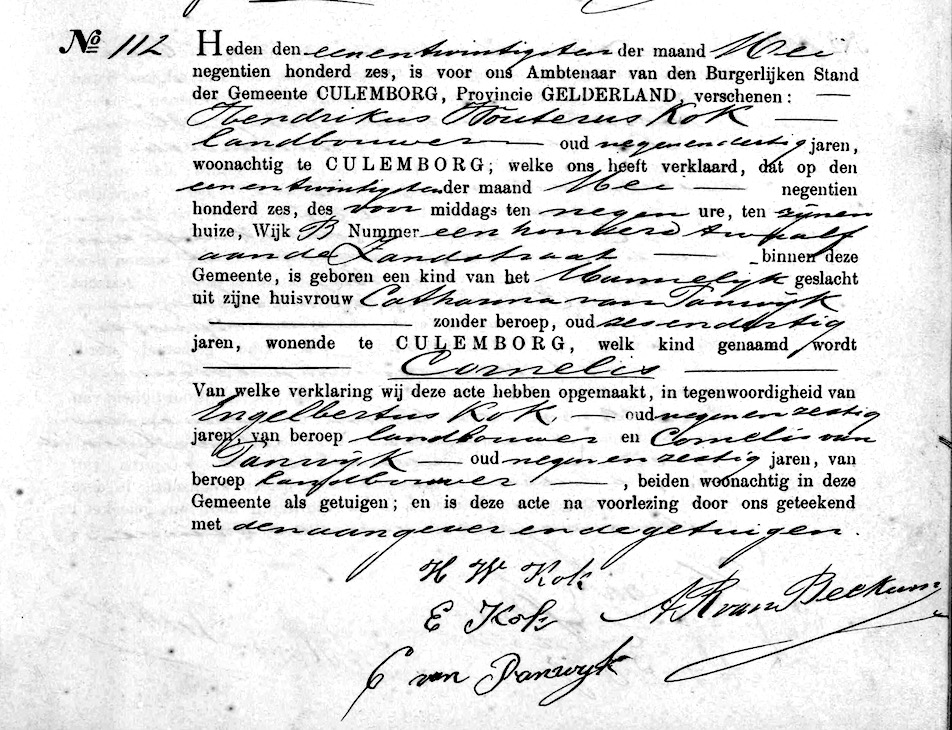 No 112 Heden den eenentwintigsten der maand Mei
negentien honderd zes, is voor ons Ambtenaar van den Burgerlijken Stand
der Gemeente CULEMBORG, Provincie GELDERLAND, verschenen: —
Hendrikus Wouterus Kok —
landbouwer — oud negenendertig jaren,
woonachtig te CULEMBORG; welke ons heeft verklaard, dat op den
eenentwintigsten der maand Mei — negentien
honderd zes, des voor middags ten negen ure, ten zijnen
huize, Wijk B Nummer een honderd twaalf
aan de Zandstraat — binnen deze
Gemeente, is geboren een kind van het Mannelijk geslacht
uit zijne huisvrouw Catharina van Tanwijk
— zonder beroep, oud zesendertig
jaren, wonende te CULEMBORG, welk kind genaamd wordt
— Cornelis —
Van welke verklaring wij deze acte hebben opgemaakt, in tegenwoordigheid van
Engelbertus Kok — oud negenenzestig
jaren, van beroep landbouwer en Cornelis van
Tanwijk — oud negenenzestig jaren, van
beroep landbouwer —, beiden woonachtig in deze
Gemeente als getuigen; en is deze acte na voorlezing door ons geteekend
met den aangever en de getuigen.
H W Kok
E Kok A R van Beekum
C van Tanwijk